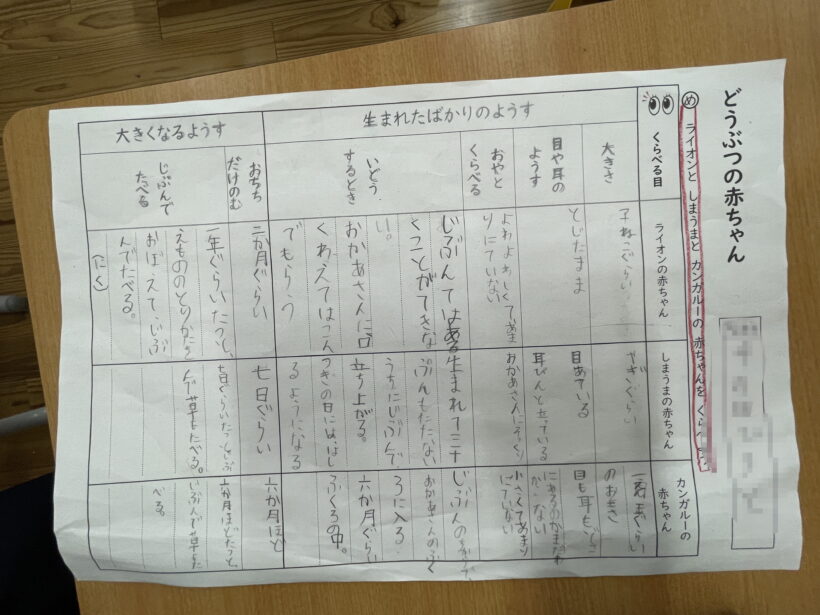 どうぶつの赤ちゃん
め ライオンと しまうまと カンガルーの 赤ちゃんを くらべ
くらべる目
ライオンの赤ちゃん
しまうまの赤ちゃん
カンガルーの
赤ちゃん
生まれたばかりのようす
大きさ
子ねこぐらい
やぎぐらい
一円玉ぐらい
のおもさ
目や耳の
ようす
とじたまま
目あいている
耳ぴんと立っている
目も耳もどこ
にあるのかまだわ
からない
おやと
くらべる
よわよわしくてあま
りにていない
おかあさんにそっくり
小さくてあまり
にていない
いどう
するとき
じぶんではある
くことができな
い。
おかあさんに口に
くわえてはこん
でもらう
生まれて三十
ぷんもたたない
うちにじぶんで
立ち上がる。
つぎの日には、はし
るようになる
じぶんの
おかあさんのふく
ろに入る
六か月ぐらい
ふくろの中。
大きくなるようす
おちち
だけのむ
二か月ぐらい
七日ぐらい
六か月ほど
じぶんで
たべる
一年ぐらいたつと、
えもののとりかたを
おぼえて、じぶ
んでたべる。
(にく)
七日ぐらいたつとじぶ
んで草もたべる。
六か月ほどたつと、
じぶんで草もた
べる。